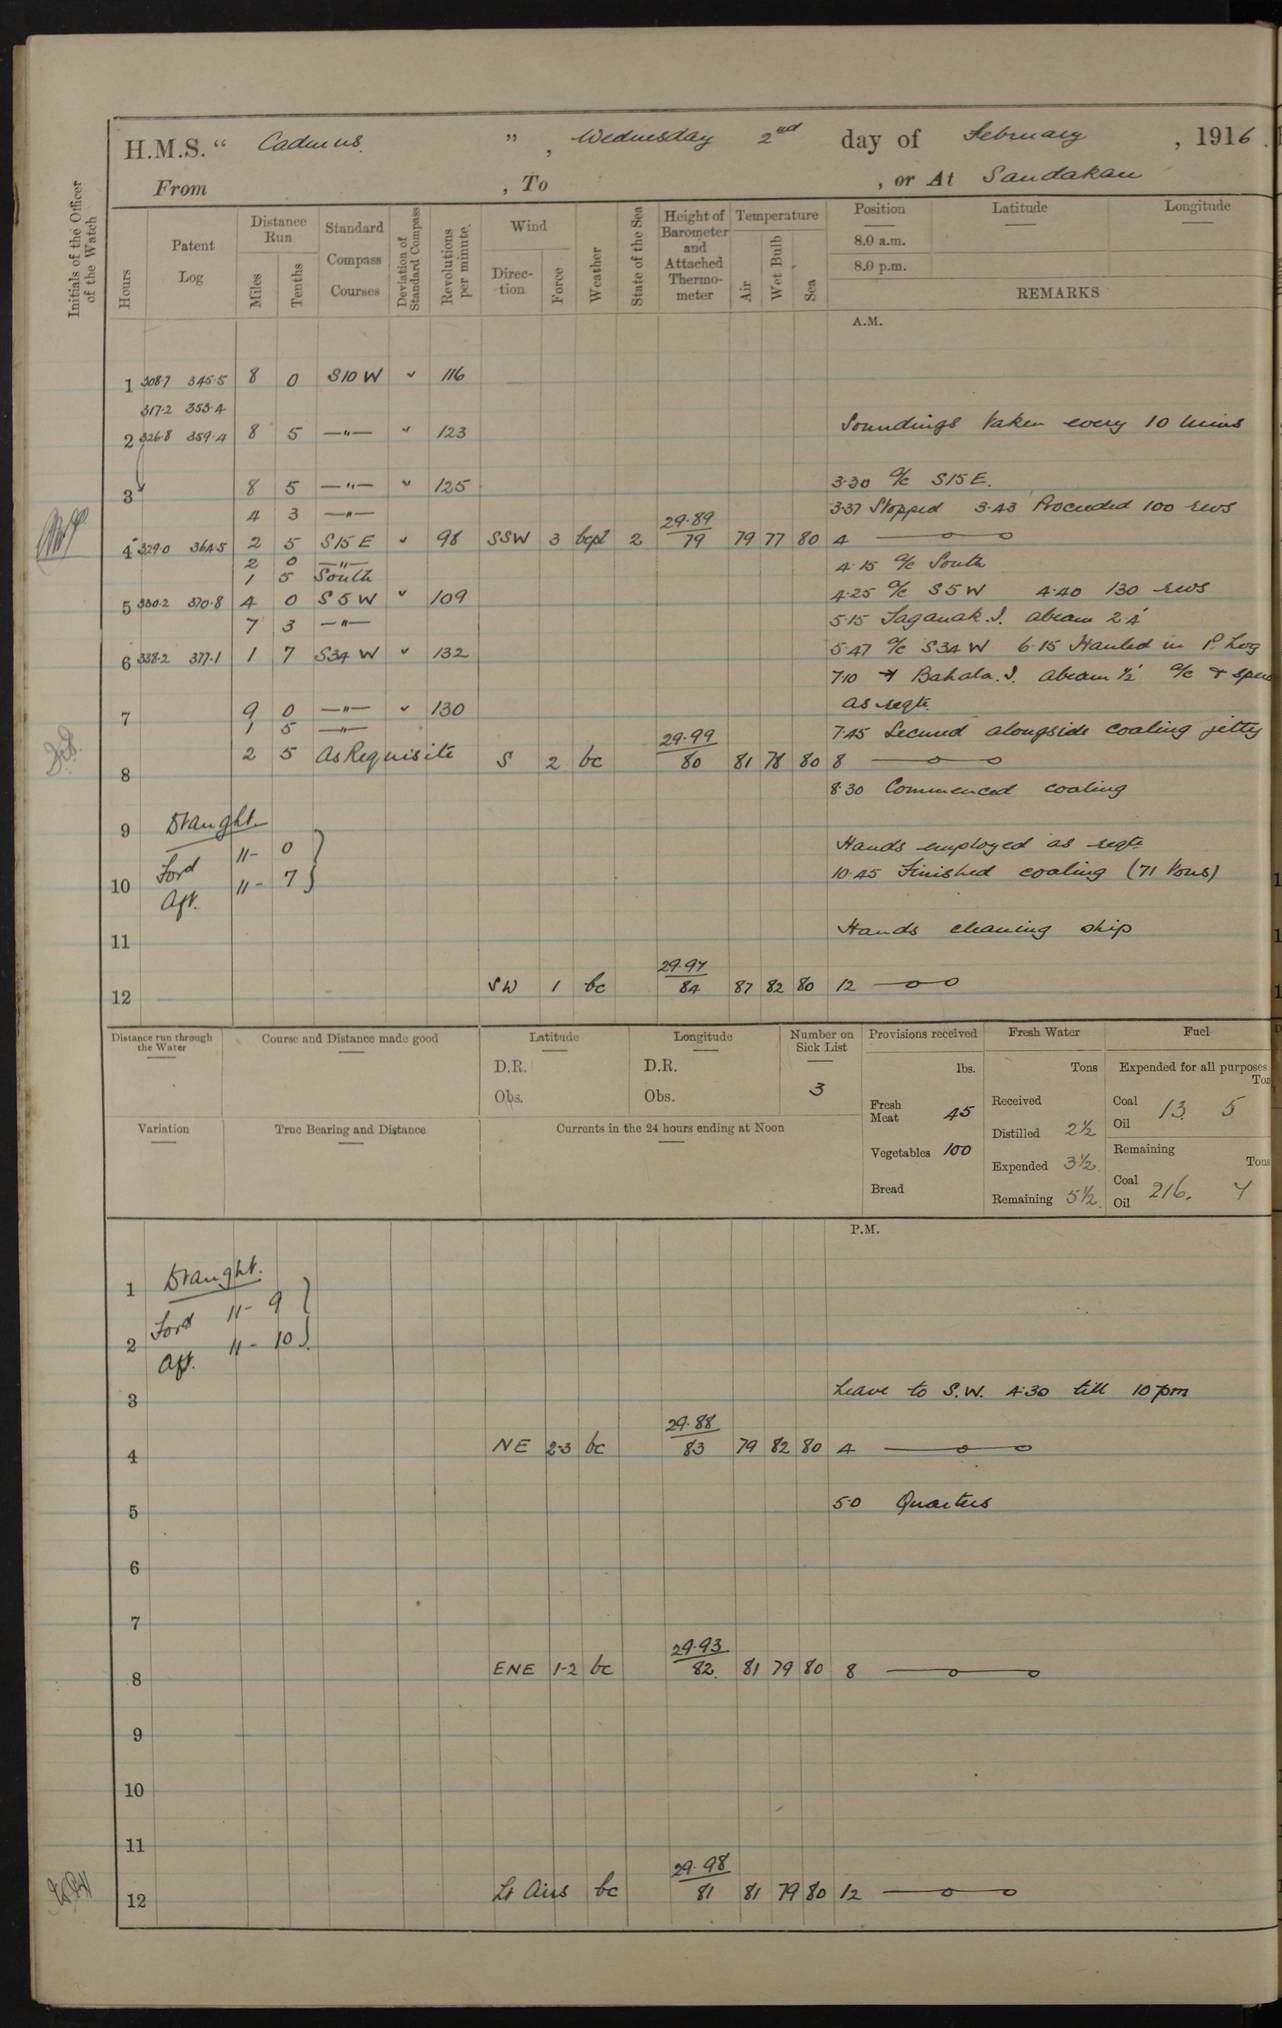 H.M.S. “ Cadmus ” , Wednesday 2nd day of February , 1916.
From , To , or At Sandakan
Initials of the Officer of the Watch
Hours
Patent Log
Distance Run
Miles Tenths
Standard Compass Courses
Deviation of Standard Compass
Revolutions per minute.
Wind
Direc-tion Force
Weather
State of the Sea
Height of Barometer and Attached Thermo-meter
Temperature
Air Wet Bulb Sea
Position Latitude Longitude
8.0 a.m.
8.0 p.m.
REMARKS
A.M.
1 308.7 345.5 8 0 S10W 116
317.2 353.4
2 326.8 359.4 8 5 —"— 123 Soundings taken every 10 mins
3 8 5 —"— 125 3.30 a/c S15E.
4 3 —"— 3.37 Stopped 3.43 Proceeded 100 revs
4 329.0 364.5 2 5 S15E 98 SSW 3 bcpl 2 29.89 79 79 77 80 4
2 0 —"— 4.15 a/c South
1 5 South
5 330.2 370.8 4 0 S5W 109 4.25 a/c S5W 4.40 130 revs
7 3 —"— 5.15 Taganak. I. abeam 2.4'
6 338.2 377.1 1 7 S34W 132 5.47 a/c S34W 6.15 Hauled in P. Log
7.10 Bahala. I. abeam ½' a/c &
7 9 0 —"— 130 as reqte.
1 5 —"— 7.45 Secured alongside coaling jetty
8 2 5 As Requisite S 2 bc 29.99 80 81 78 80 8
8.30 Commenced coaling
9 Draught
Ford 11 - 0 Hands employed as reqte
10 Aft. 11 - 7 10.45 Finished coaling (71 tons)
11 Hands cleaning ship
12 SW 1 bc 29.97 84 87 82 80 12
Distance run through the Water
Course and Distance made good
Latitude
D.R.
Obs.
Longitude
D.R.
Obs.
Number on Sick List
3
Provisions received
lbs.
Fresh Meat 45
Vegetables 100
Bread
Fresh Water
Tons
Received
Distilled 2½
Expended 3½
Remaining 5½
Fuel
Expended for all purposes
Coal 13. 5
Oil
Remaining
Tons
Coal 216. 7
Oil
Variation
True Bearing and Distance
Currents in the 24 hours ending at Noon
P.M.
1 Draught.
Ford 11 - 9
2 Aft. 11 - 10
3 Leave to S.W. 4.30 till 10 pm
4 NE 2-3 bc 29.88 83 79 82 80 4
5 5.0 Quarters
6
7
8 ENE 1-2 bc 29.93 82 81 79 80 8
9
10
11
12 Lt Airs bc 29.98 81 81 79 80 12